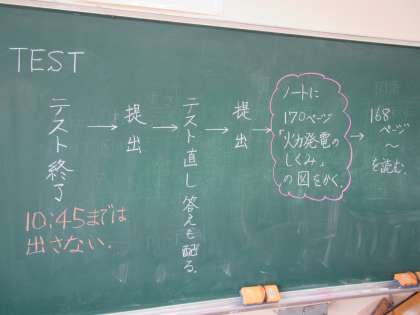 TEST
テスト終了
→
提出
→
テスト直し 答えも配る。
提出
→
ノートに
170ページ
「火力発電の
しくみ」
の図をかく。
→
168
ページ
〜
を読む。
10:45までは
出さない.